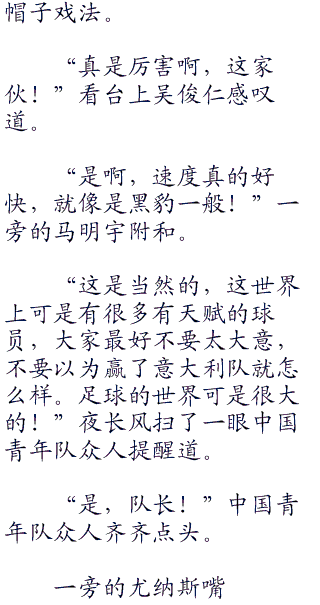 帽子戏法。
“真是厉害啊，这家
伙！”看台上吴俊仁感叹
道。
“是啊，速度真的好
快，就像是黑豹一般！”一
旁的马明宇附和。
“这是当然的，这世界
上可是有很多有天赋的球
员，大家最好不要太大意，
不要以为赢了意大利队就怎
么样。足球的世界可是很大
的！”夜长风扫了一眼中国
青年队众人提醒道。
“是，队长！”中国青
年队众人齐齐点头。
一旁的尤纳斯嘴